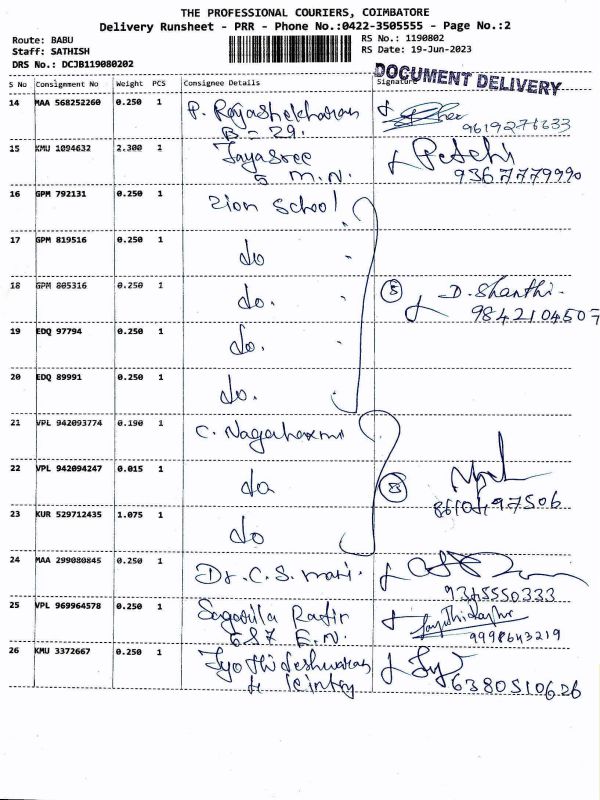 THE PROFESSIONAL COURIERS, COIMBATORE
Delivery Runsheet - PRR - Phone No.:0422-3505555 - Page No.:2
Route: BABU
RS No.: 1190802
Staff: SATHISH
RS Date: 19-Jun-2023
DRS No.: DCJB119080202
DOCUMENT DELIVERY
S No Consignment No Weight PCS Consignee Details Signature
14 MAA 568252260 0.250 1 P. Rajashekharan
B-29. 9619276633
15 KMU 1094632 2.300 1 Jayasree Petchi
5 M.N. 9367779990
16 GPM 792131 0.250 1 Zion School
17 GPM 819516 0.250 1 do
18 GPM 805316 0.250 1 do. 5 D. Shanthi.
9842104507
19 EDQ 97794 0.250 1 do.
20 EDQ 89991 0.250 1 do.
21 VPL 942093774 0.190 1 C.
22 VPL 942094247 0.015 1 do
23 KUR 529712435 1.075 1 do
24 MAA 299080845 0.250 1 Dr. C. S. mari.
9345550333
25 VPL 969964578 0.250 1
687 E.N. 9998643219
26 KMU 3372667 0.250 1
6380510626